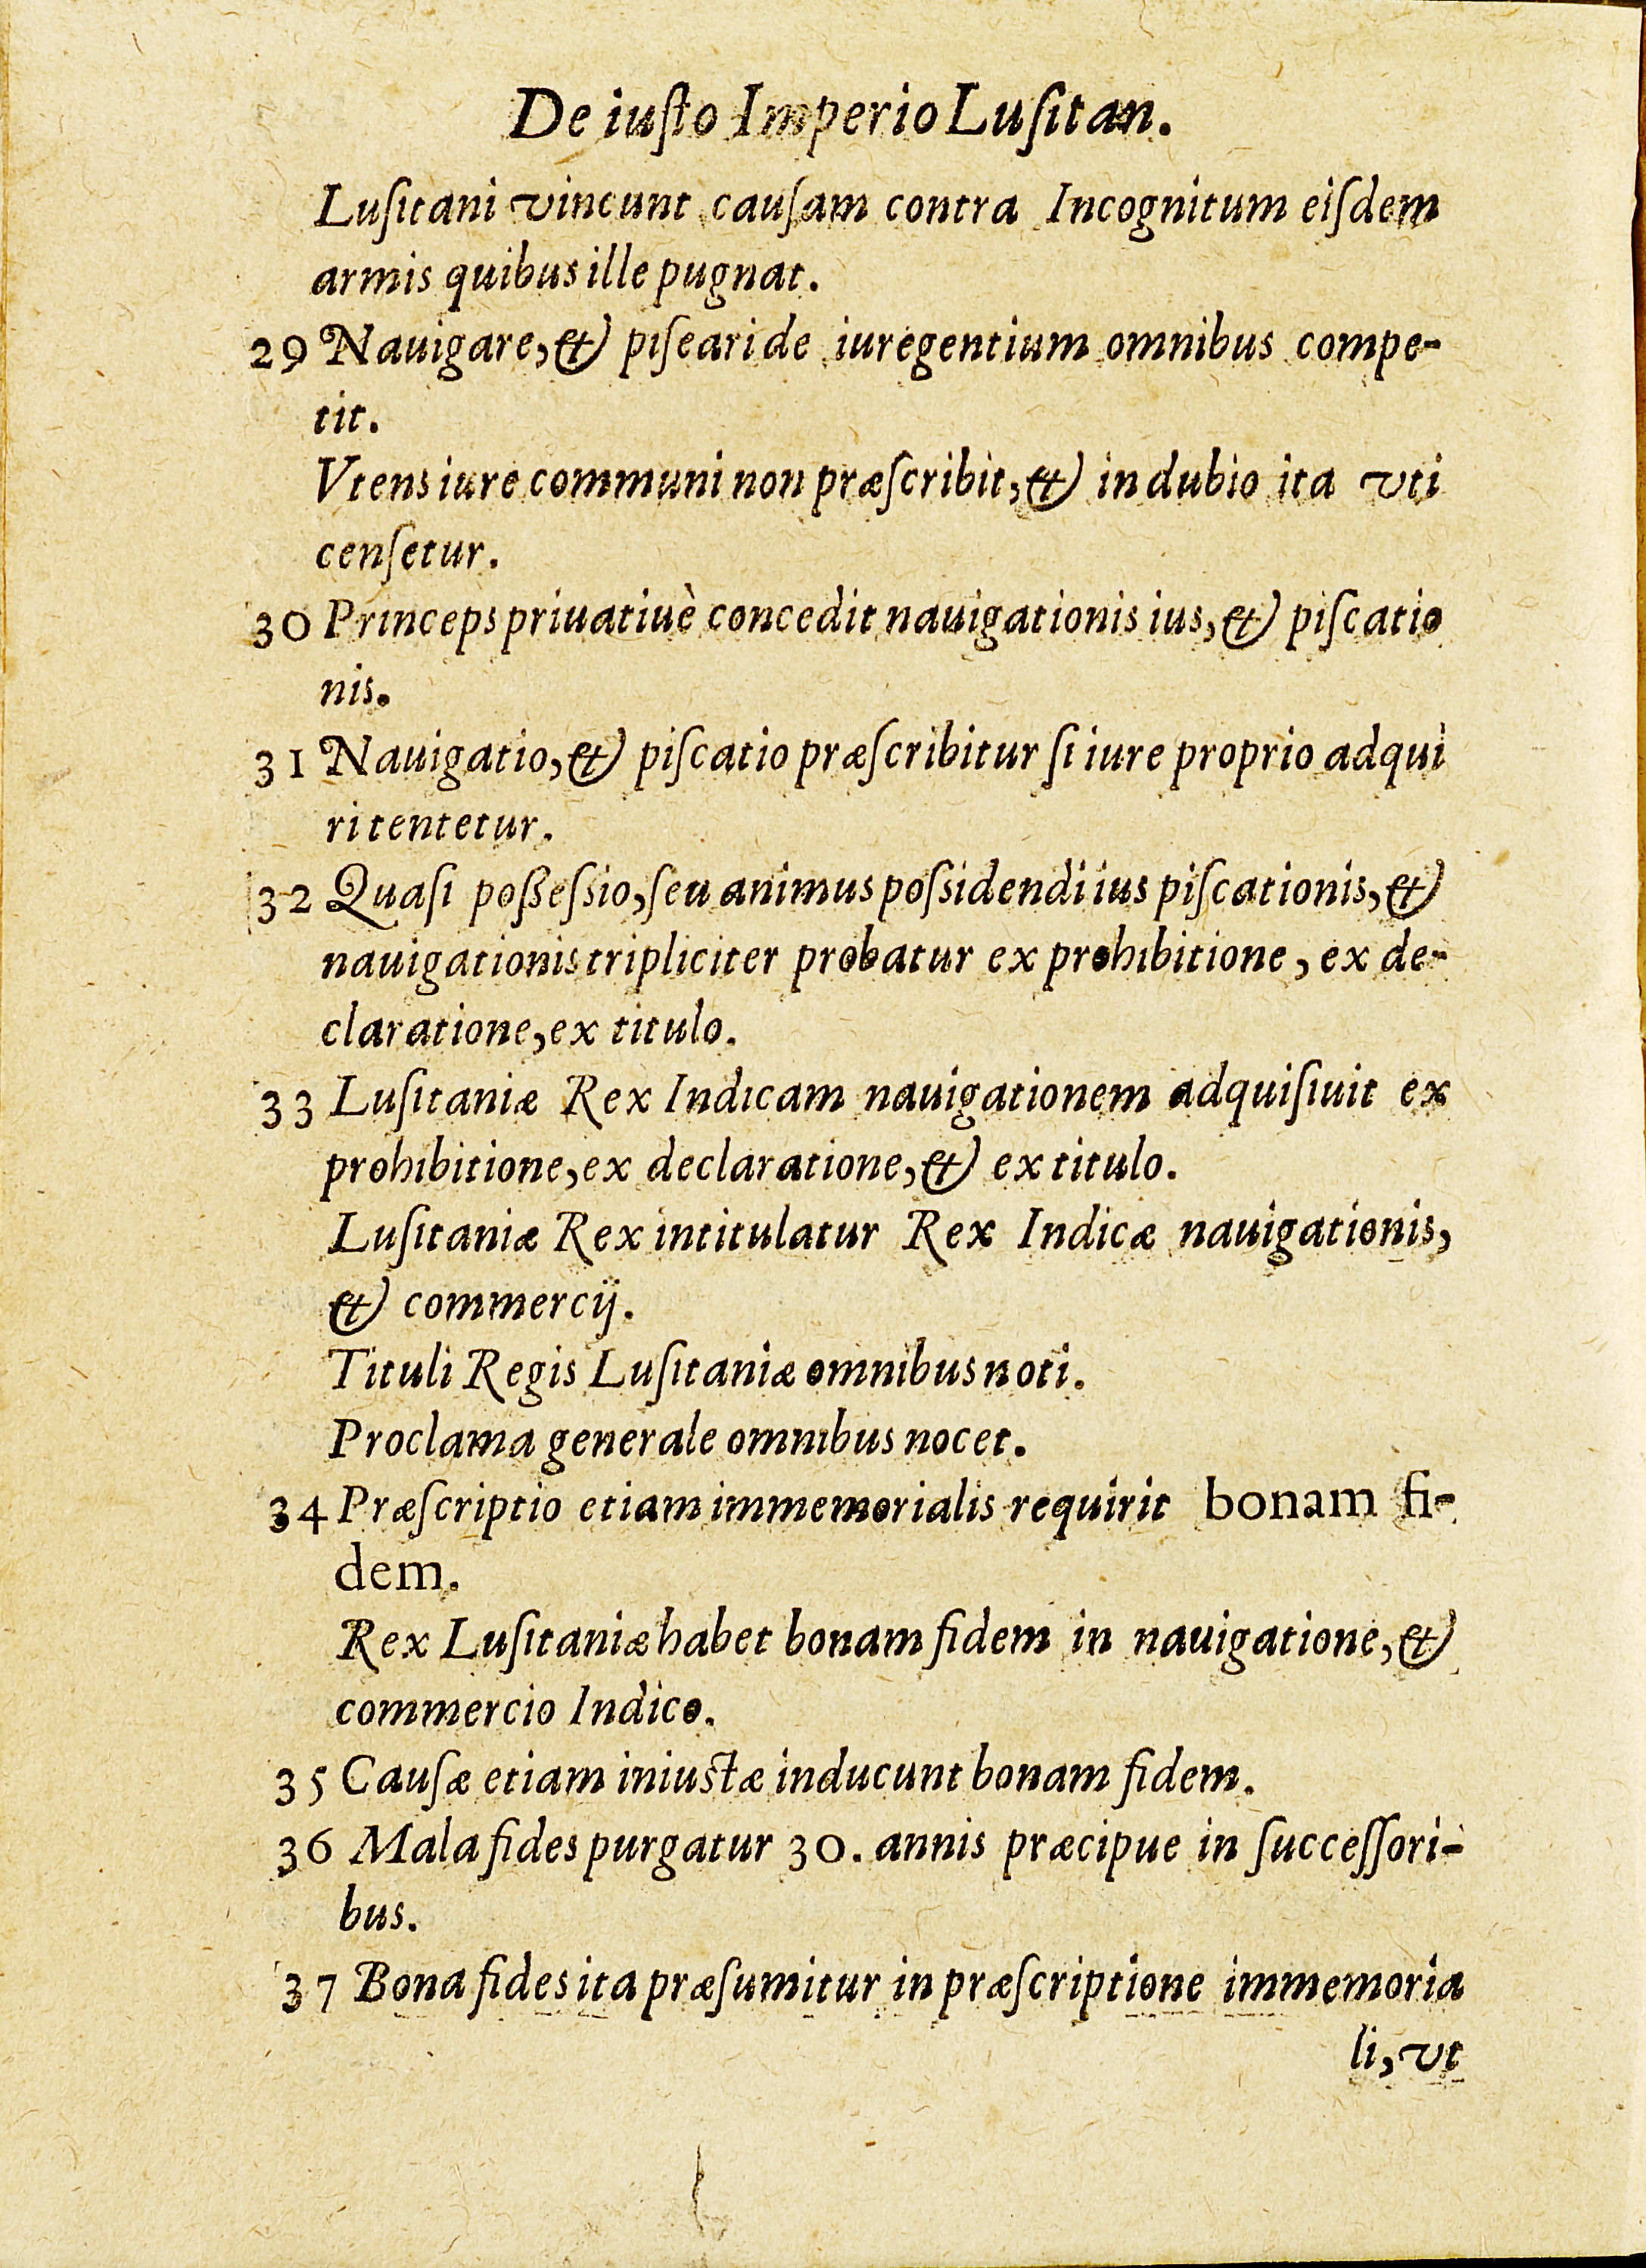 De iuſto Imperio Luſitan.
Luſitani vincunt cauſam contra Incognitum eiſdem
armis quibus ille pugnat.
29 Nauigare, & piſeari de iure gentium omnibus compe-
tit.
Vtens iure communi non præſcribit, & in dubio ita vti
cenſetur.
30 Princeps priuatiuè concedit nauigationis ius, & piſcatio
nis.
31 Nauigatio, & piſcatio præſcribitur ſi iure proprio adqui
ri tentetur.
32 Quaſi poßeſsio, ſeu animus poſsidendi ius piſcationis, &
nauigationis tripliciter probatur ex prohibitione, ex de-
claratione, ex titulo.
33 Luſitaniæ Rex Indicam nauigationem adquiſiuit ex
prohibitione, ex declaratione, & ex titulo.
Luſitaniæ Rex intitulatur Rex Indicæ nauigationis,
& commercij.
Tituli Regis Luſitaniæ omnibus noti.
Proclama generale omnibus nocet.
34 Præſcriptio etiam immemorialis requirit bonam fi-
dem.
Rex Luſitaniæ habet bonam fidem in nauigatione, &
commercio Indico.
35 Cauſæ etiam iniuſtæ inducunt bonam fidem.
36 Mala fides purgatur 30. annis præcipue in ſucceſſori-
bus.
37 Bona fides ita præſumitur in præſcriptione immemoria
li, vt